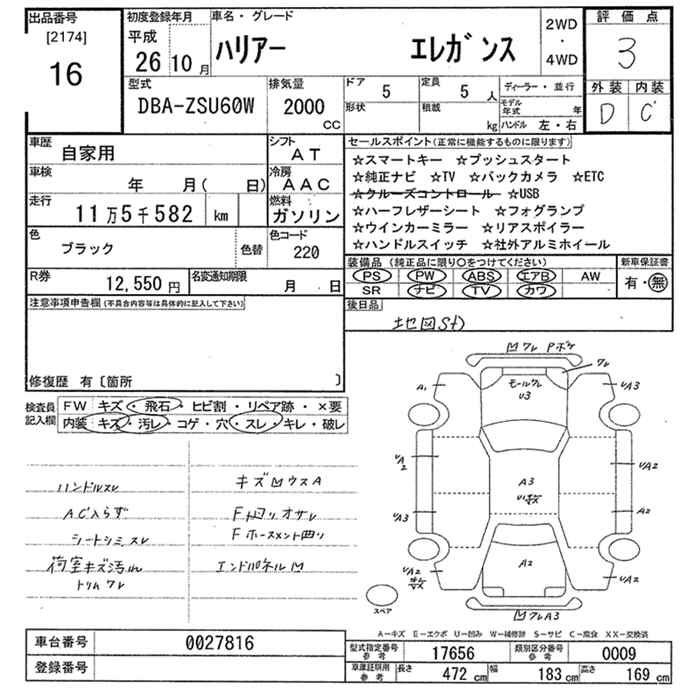 出品番号 初度登録年月 車名・グレード 2WD・4WD 評価点
[2174] 平成
16 26年10月 ハリアー エレガンス 3
型式 排気量 ドア 定員 ディーラー・並行 外装 内装
DBA-ZSU60W 2000cc 5 5人 D C
形状 積載 kg モデル年式 年
ハンドル 左・右
車歴 自家用 シフト AT セールスポイント(正常に機能するものに限ります)
車検 年 月( 日) 冷房 AAC
☆スマートキー ☆プッシュスタート
☆純正ナビ ☆TV ☆バックカメラ ☆ETC
走行 11万5千582 km 燃料 ガソリン
☆クルーズコントロール ☆USB
☆ハーフレザーシート ☆フォグランプ
色 ブラック 色替 色コード 220
☆ウインカーミラー ☆リアスポイラー
☆ハンドルスイッチ ☆社外アルミホイール
R券 12,550円 名変通知期限 月 日
装備品 (純正品に限り○をつけてください) 新車保証書
PS PW ABS エアB AW 有・無
SR ナビ TV カワ
注意事項申告欄(不具合内容等は具体的に記入して下さい)
後日品
地図SD
修復歴 有〔箇所 〕
検査員記入欄 FW キズ・飛石・ヒビ割・リペア跡・×要
内装 キズ・汚レ・コゲ・穴・スレ・キレ・破レ
ハンドルスレ キズ凹ウスA
AC入らず F廻りオサレ
シートシミスレ Fホースメント曲り
荷室キズ汚れ エンドパネル凹
トリムワレ
凹ワレ Pボケ
ワレ
A1 モールワレ UA3
U3
UA2 A3 UA2
UA3 A2
UA2 A2 UA2
凹ワレA3
スペア
A-キズ E-エクボ U-凹み W-補修跡 S-サビ C-腐食 XX-交換済
車台番号 0027816
登録番号
型式指定番号 参考 17656 類別区分番号 参考 0009
車庫証明用 参考 長さ 472cm 幅 183cm 高さ 169cm